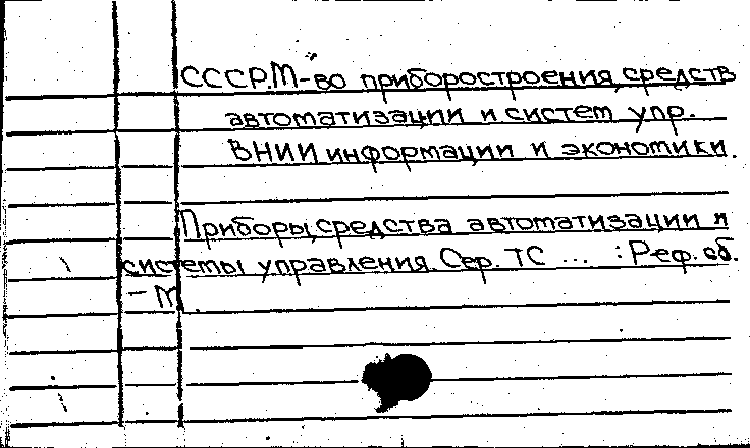 СССР.М-во приборостроения, средств
автоматизации и систем упр.
ВНИИ информации и экономики.
Приборы, средства автоматизации и
системы управления. Сер. ТС ... : Реф. сб.
– М.